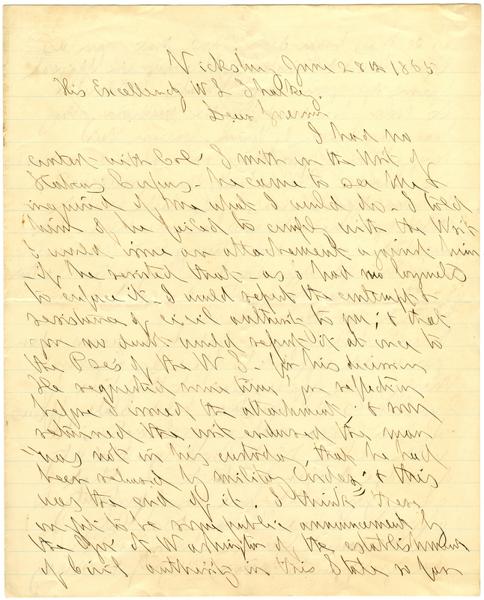 Vicksburg June 28th 1865
His Excellency W L Sharkey.
Dear Governor
I had no
contest with Col Smith on the Writ of
Habeas Corpus - he came to see me &
inquired of me what I would do - I told
him if he failed to comply with the Writ
I would issue an attachment against him
- if he resisted that - as I had no
to enforce it - I would report the contempt &
resistance of civil authority to you; & that
you no doubt would report it at once to
the Pres of the U S - for his decision
He requested some time for reflection
before I issued the attachment; & soon
returned the writ endorsed the man
"was not in his custody, that he had
been released by military Orders"; & this
was the end of it. I think there
ought to be some public announcement by
the Gov at Washington of the establishment
of Civil authority in this State so far